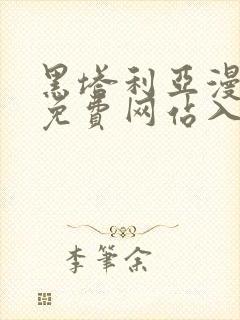 黑塔利亞漫
免費网佔入
李筆余